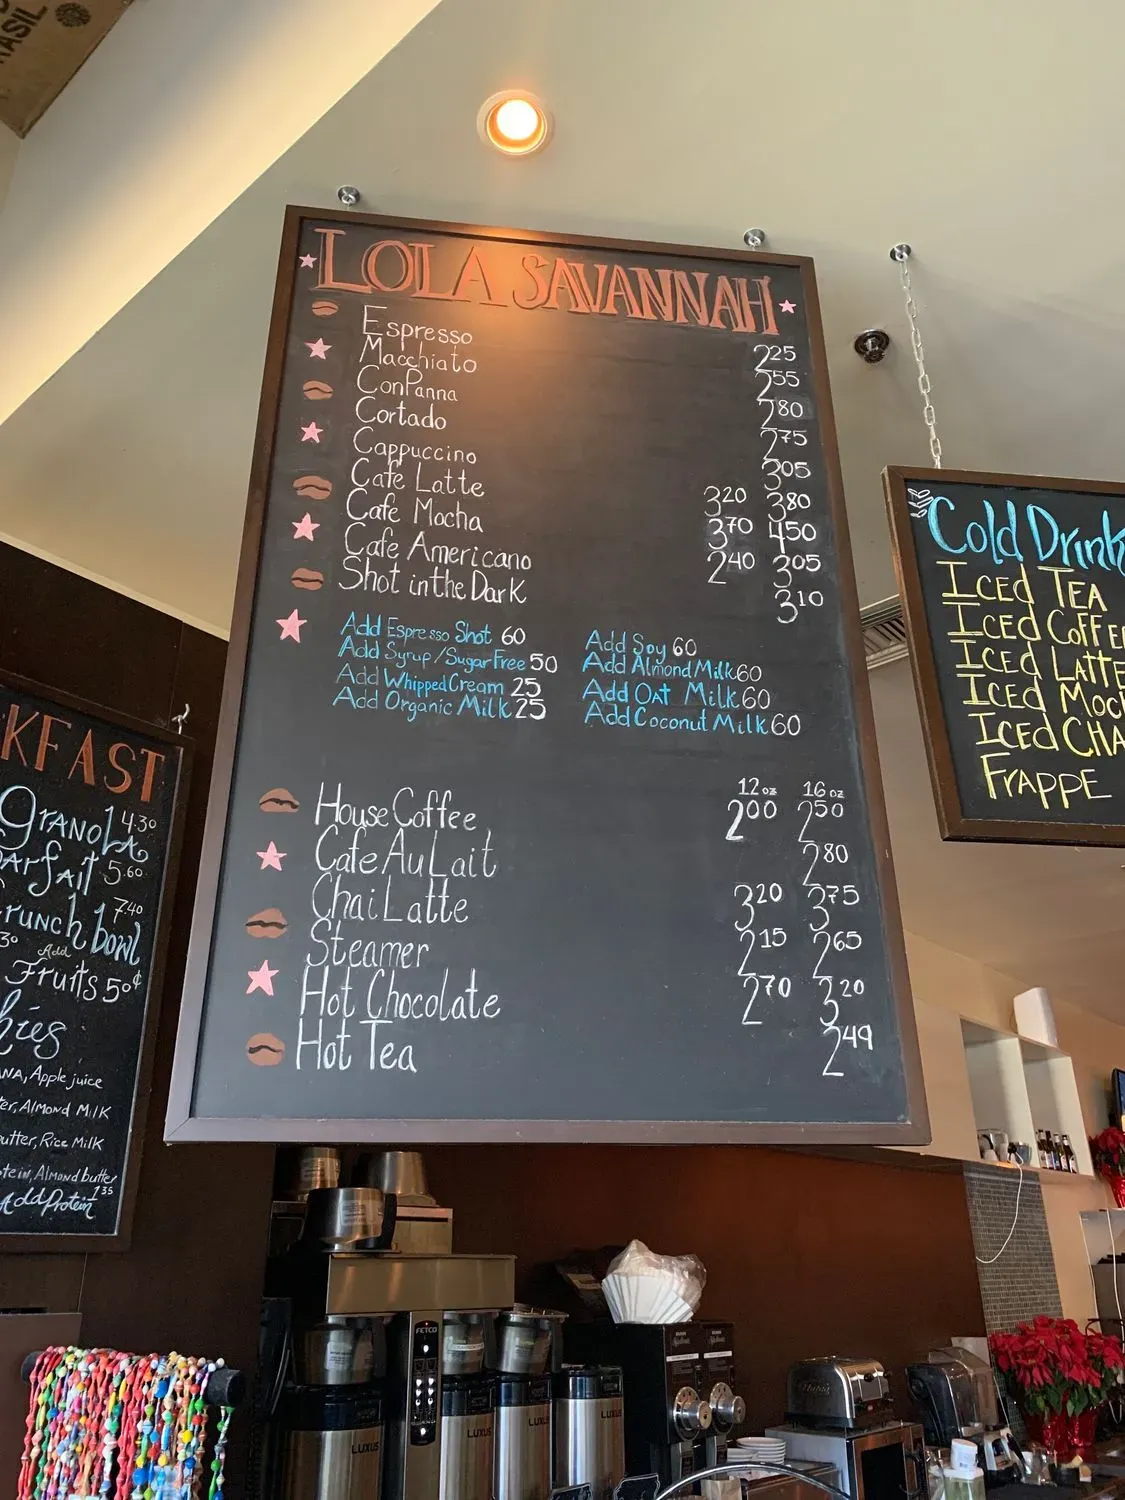 RASIL
LOLA SAVANNAH
Espresso 2.25
Macchiato 2.55
ConPanna 2.80
Cortado 2.75
Cappuccino 3.05
Cafe Latte 3.20 3.80
Cafe Mocha 3.70 4.50
Cafe Americano 2.40 3.05
Shot in the Dark 3.10
Add Espresso Shot 60
Add Syrup/Sugar Free 50
Add Whipped Cream 25
Add Organic Milk 25
Add Soy 60
Add Almond Milk 60
Add Oat Milk 60
Add Coconut Milk 60
12oz 16oz
House Coffee 2.00 2.50
Cafe Au Lait 2.80
Chai Latte 3.20 3.75
Steamer 2.15 2.65
Hot Chocolate 2.70 3.20
Hot Tea 2.49
Cold Drink
Iced Tea
Iced Coffee
Iced Latte
Iced Moc
Iced Cha
Frappe
KFAST
Granola 4.30
arfait 5.60
runch bowl 7.40
30 Add
Fruits 50¢
hies
NA, Apple juice
ter, Almond Milk
utter, Rice Milk
tein, Almond butter
Add Protein 1.35
FETCO
LUXUS
LUXUS
LUXUS
LUXUS